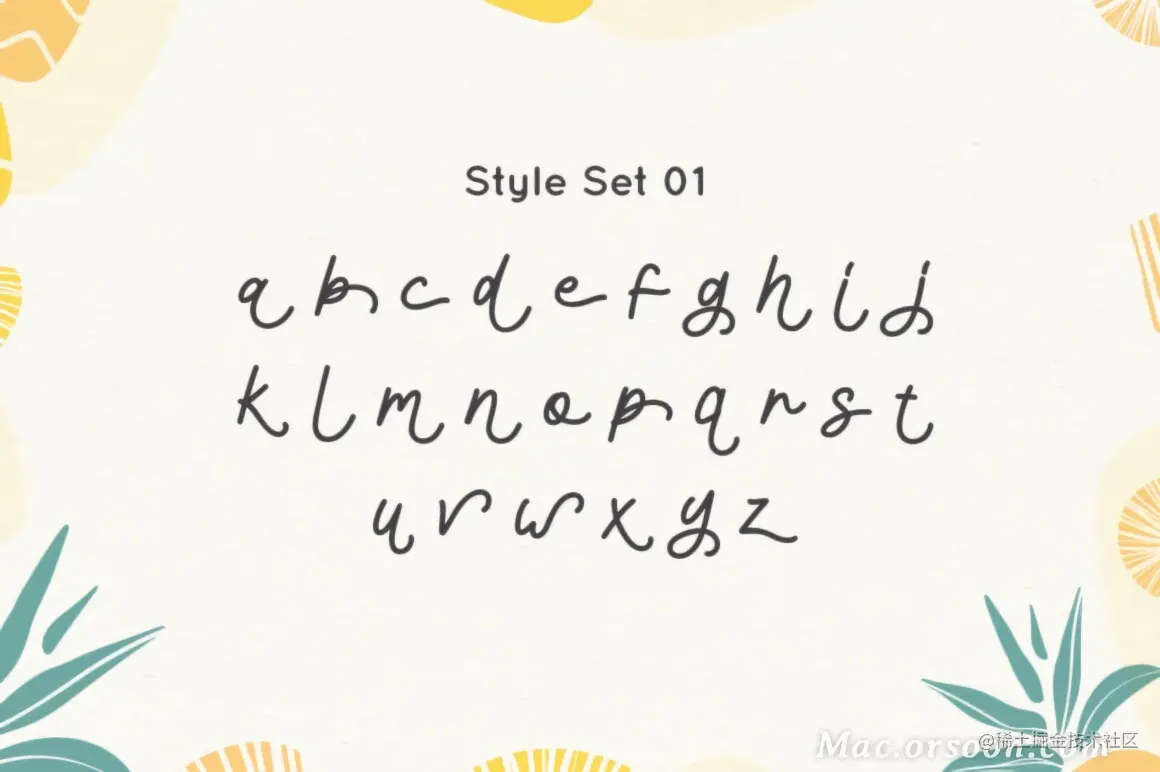 Style Set 01
a b c d e f g h i j
k l m n o p q r s t
u v w x y z
Mac.orsoon.com
@稀土掘金技术社区